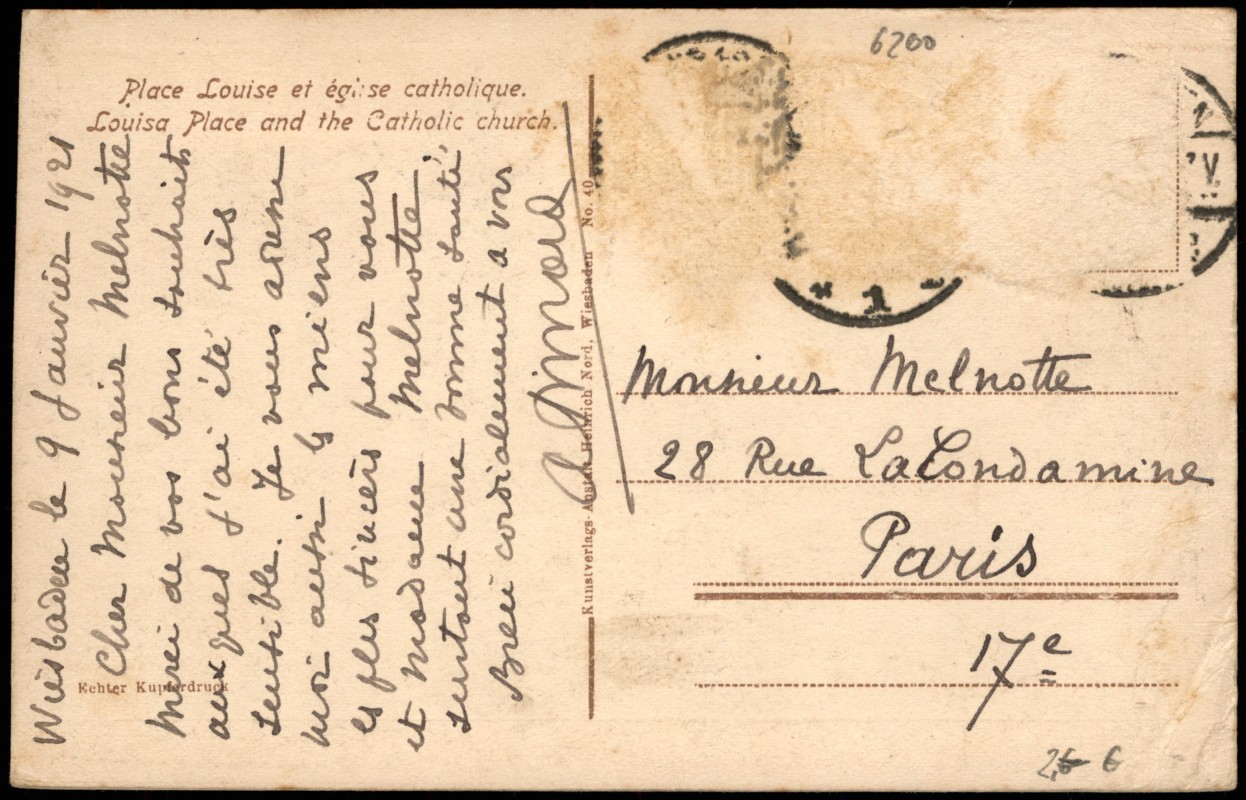 Place Louise et église catholique.
Louisa Place and the Catholic church.
Wiesbaden le 9 Janvier 1921
Cher Monsieur Melnotte
Merci de vos bons souhaits
auxquels j'ai été très
sensible. Je vous adresse
moi aussi les miens
les plus sincères pour vous
et Madame Melnotte
surtout une bonne santé
Bien cordialement a vous
Echter Kupferdruck
Kunstverlags-Anstalt Heinrich Nord, Wiesbaden No. 40
6200
* 1
V
Monsieur Melnotte
28 Rue LaCondamine
Paris
17e